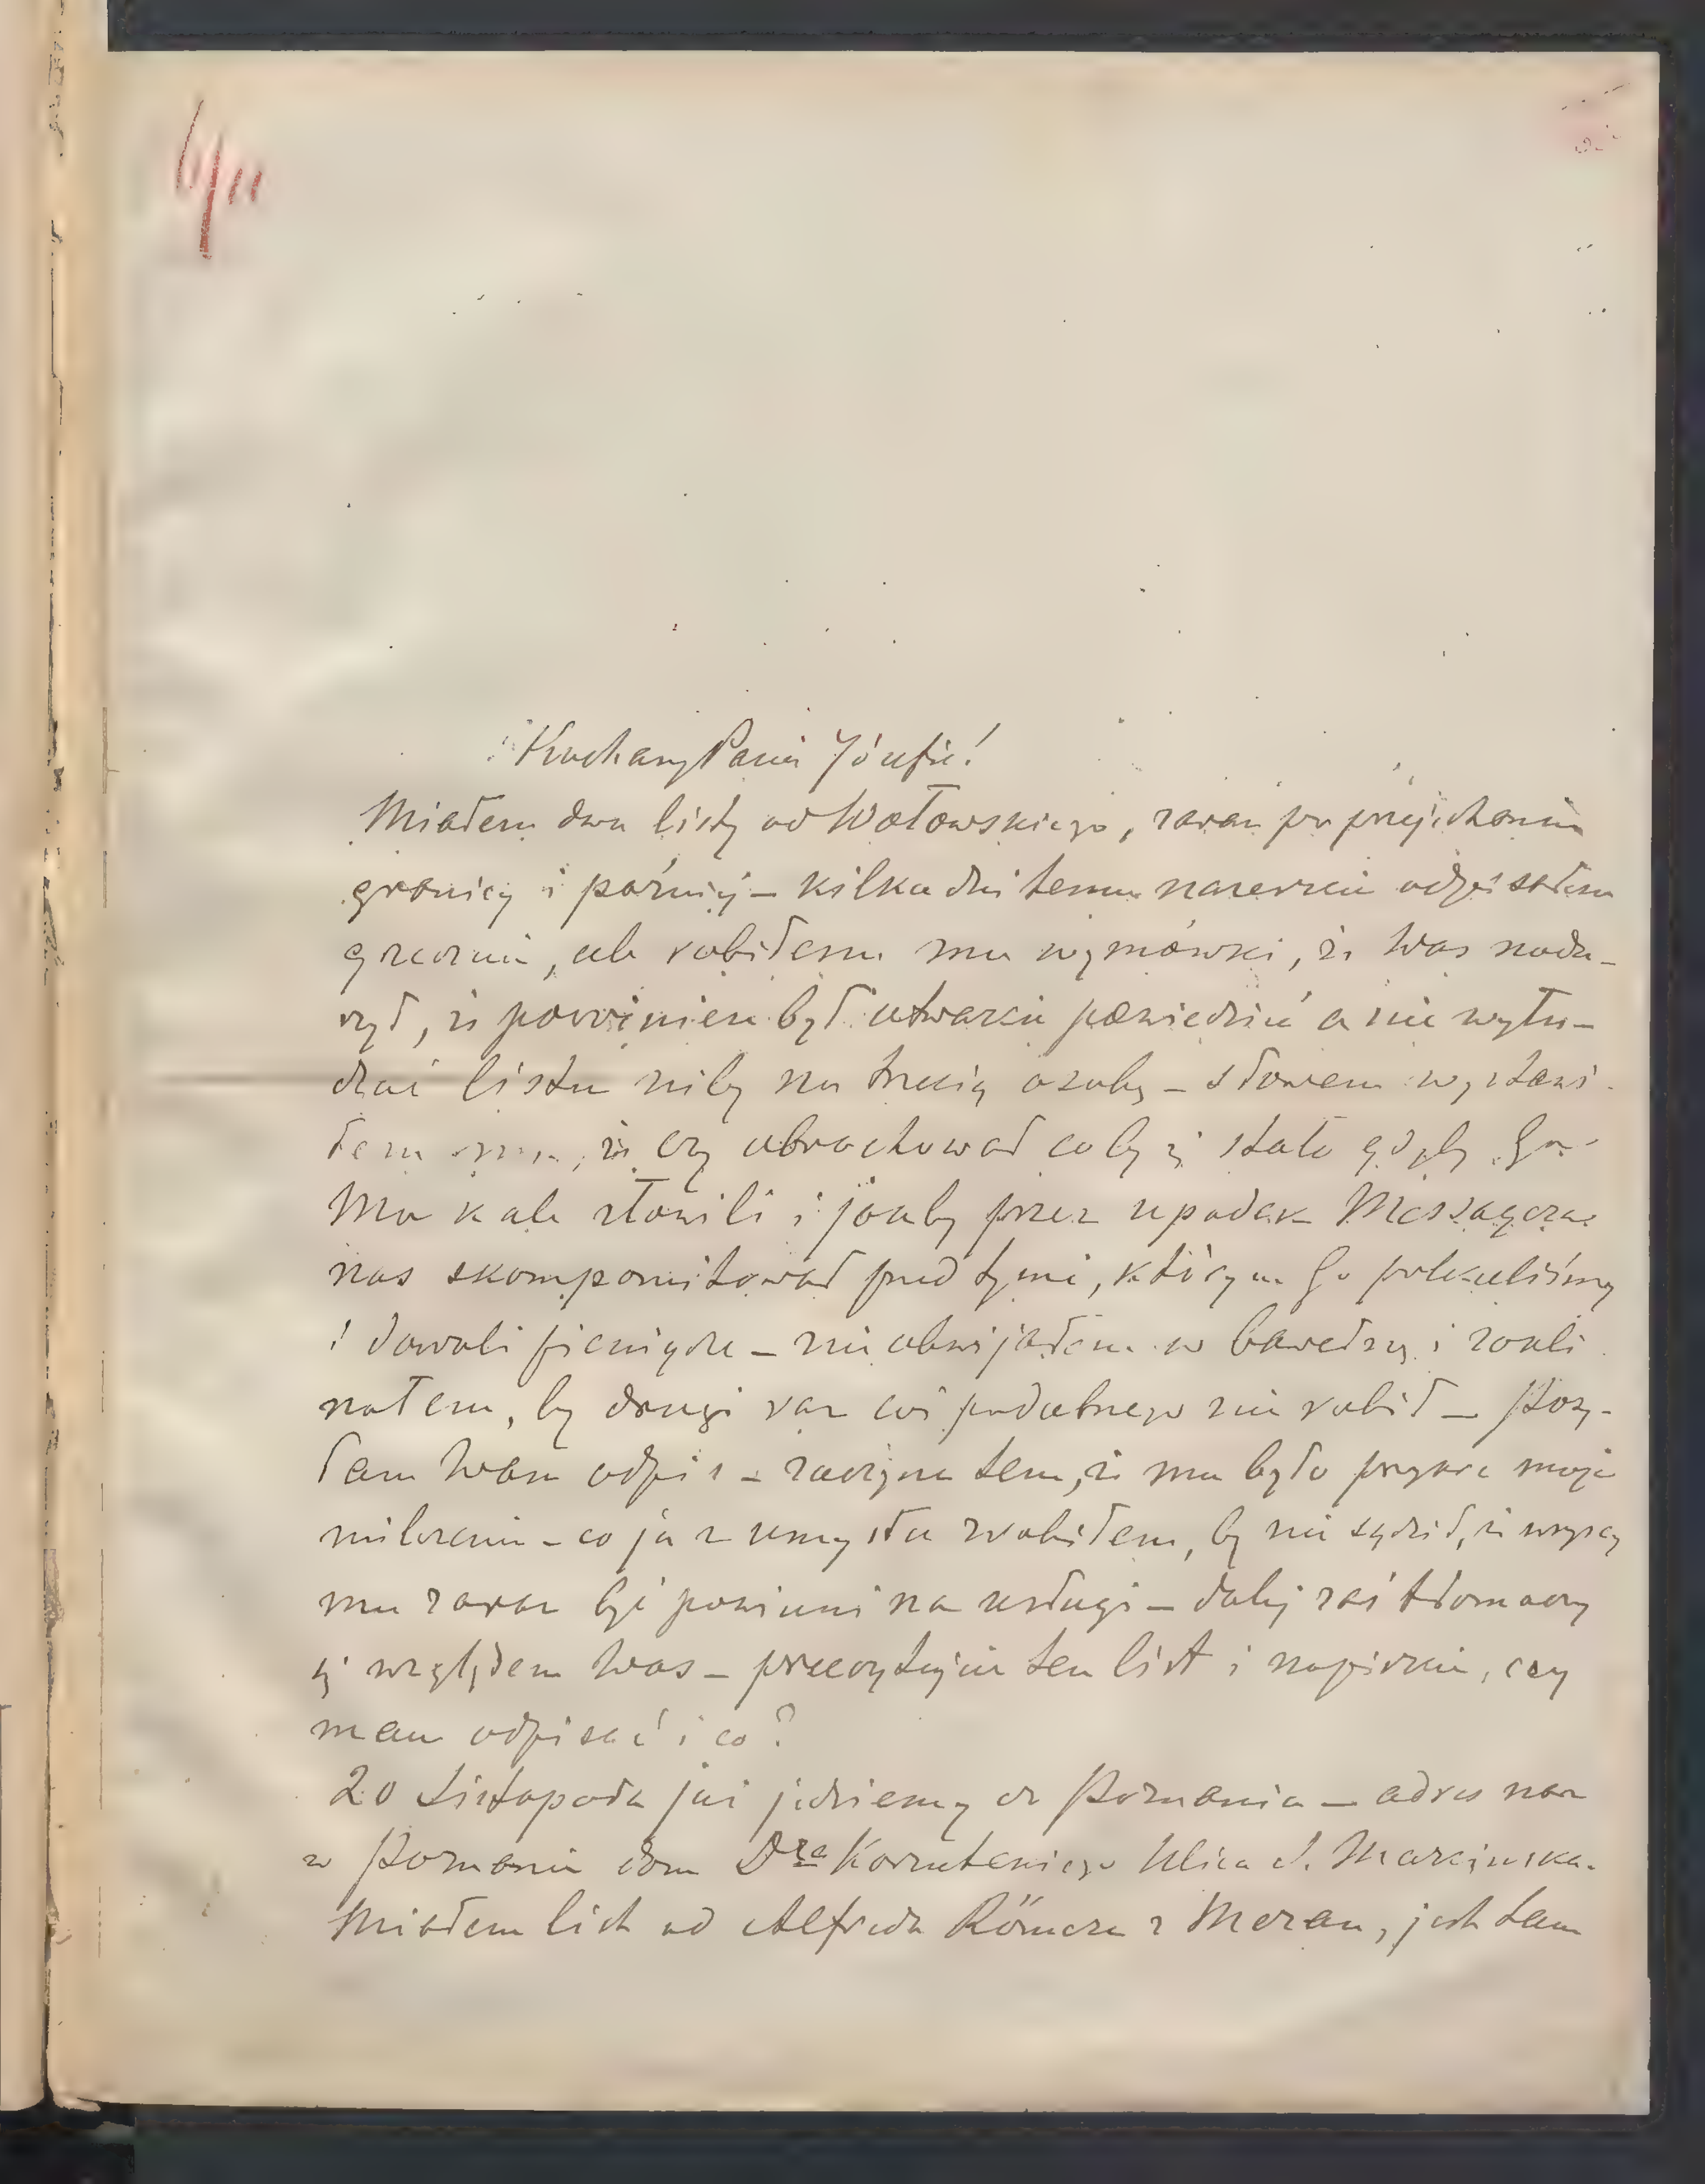 Kochany Panie Józefie!
Miałem dwa listy od Wołowskiego, zaraz po przejechaniu
granicy i później – kilka dni temu nareszcie odpisałem
grzecznie, ale robiłem mu wymówki, że Was nadu-
żył, że powinien był otwarcie powiedzieć a nie wyłu-
dzać listu niby na trzecią osobę – słowem wystawi-
łem mu, że czy obrachował coby się stało gdyby Go
Moskale złowili i jakby przez upadek
nas skompromitował przed tymi, którym Go polecaliśmy
i dawali pieniądze – nie obwijałem w bawełnę i zakli
nałem, by drugi raz coś podobnego nie robił – Posy-
łam Wam odpis – zaczyna tem, że mu było przykre moje
milczenie – co ja z umysłu zrobiłem, by nie sądził, że wszyscy
mu zaraz być powinni na usługi – dalej zaś tłomaczy
się względem Was – przeczytajcie ten list i napiszcie, czy
mam odpisać i co?
20 Listopada już jedziemy do Poznania – adres nasz
w Poznaniu dom Dra Ulica S. Marcinska.
Miałem list od Alfreda Römera z Meran, jest tam